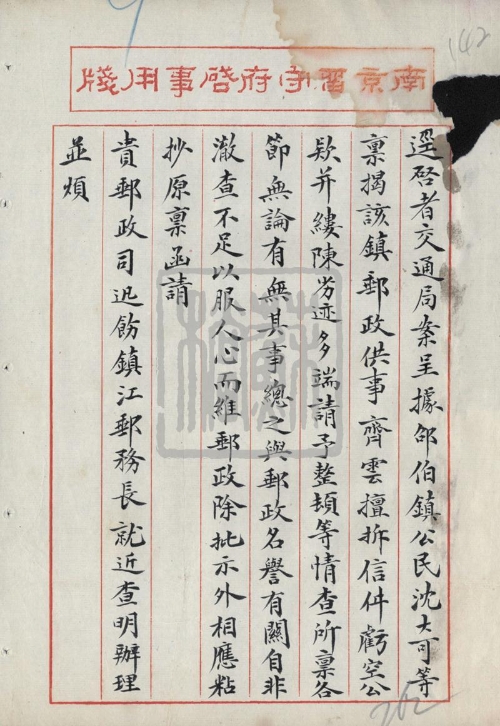 142
南京留守府啓事用牋
逕啓者交通局案呈據邵伯鎮公民沈大可等
稟揭該鎮郵政供事齊雲擅拆信件虧空公
欵并縷陳劣迹多端請予整頓等情查所稟各
節無論有無其事總之與郵政名譽有關自非
澈查不足以服人心而維郵政除批示外相應粘
抄原稟函請
貴郵政司迅飭鎮江郵務長就近查明辦理
並煩
262